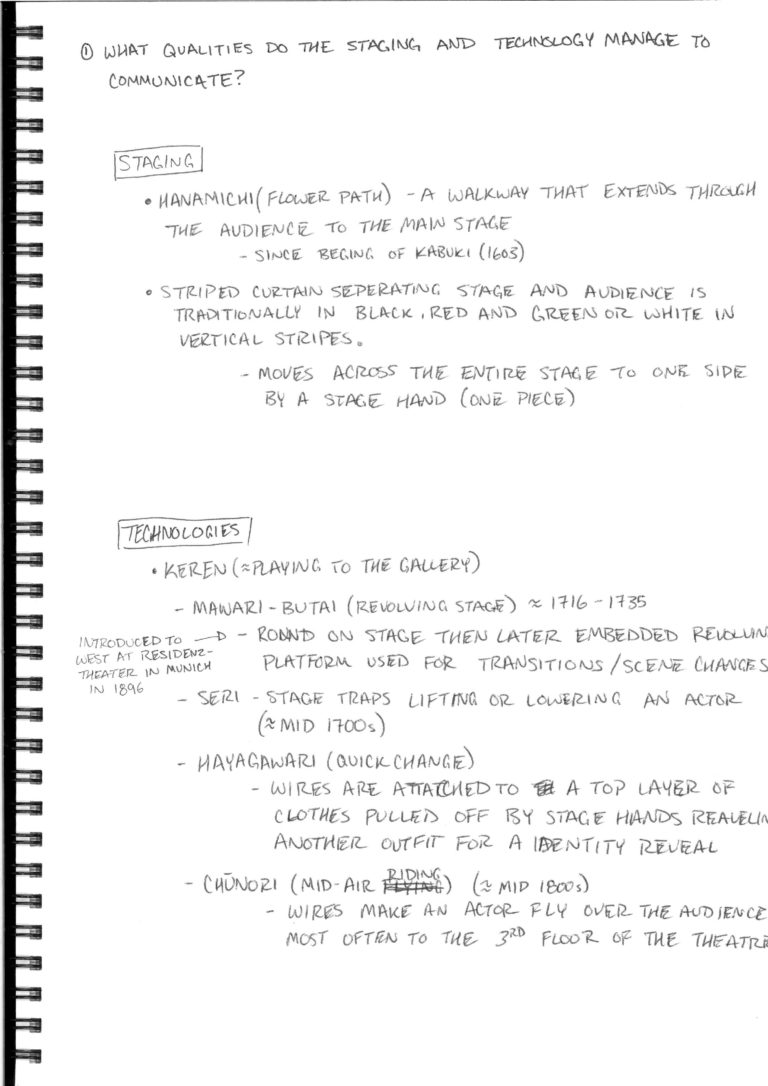 ① WHAT QUALITIES DO THE STAGING AND TECHNOLOGY MANAGE TO
COMMUNICATE?
STAGING
• HANAMICHI (FLOWER PATH) - A WALKWAY THAT EXTENDS THROUGH
THE AUDIENCE TO THE MAIN STAGE
- SINCE BEGING OF KABUKI (1603)
• STRIPED CURTAIN SEPERATING STAGE AND AUDIENCE IS
TRADITIONALLY IN BLACK, RED AND GREEN OR WHITE IN
VERTICAL STRIPES.
- MOVES ACROSS THE ENTIRE STAGE TO ONE SIDE
BY A STAGE HAND (ONE PIECE)
TECHNOLOGIES
• KEREN (≈PLAYING TO THE GALLERY)
- MAWARI-BUTAI (REVOLVING STAGE) ≈ 1716-1735
- ROUND ON STAGE THEN LATER EMBEDDED REVOLVIN
PLATFORM USED FOR TRANSITIONS/SCENE CHANGES
INTRODUCED TO
WEST AT RESIDENZ-
THEATER IN MUNICH
IN 1896
- SERI - STAGE TRAPS LIFTING OR LOWERING AN ACTOR
(≈ MID 1700s)
- HAYAGAWARI (QUICK CHANGE)
- WIRES ARE ATTATCHED TO A TOP LAYER OF
CLOTHES PULLED OFF BY STAGE HANDS REALELIN
ANOTHER OUTFIT FOR A IDENTITY REVEAL
- CHŪNORI (MID-AIR RIDING) (≈ MID 1800s)
- WIRES MAKE AN ACTOR FLY OVER THE AUDIENCE
MOST OFTEN TO THE 3RD FLOOR OF THE THEATRE